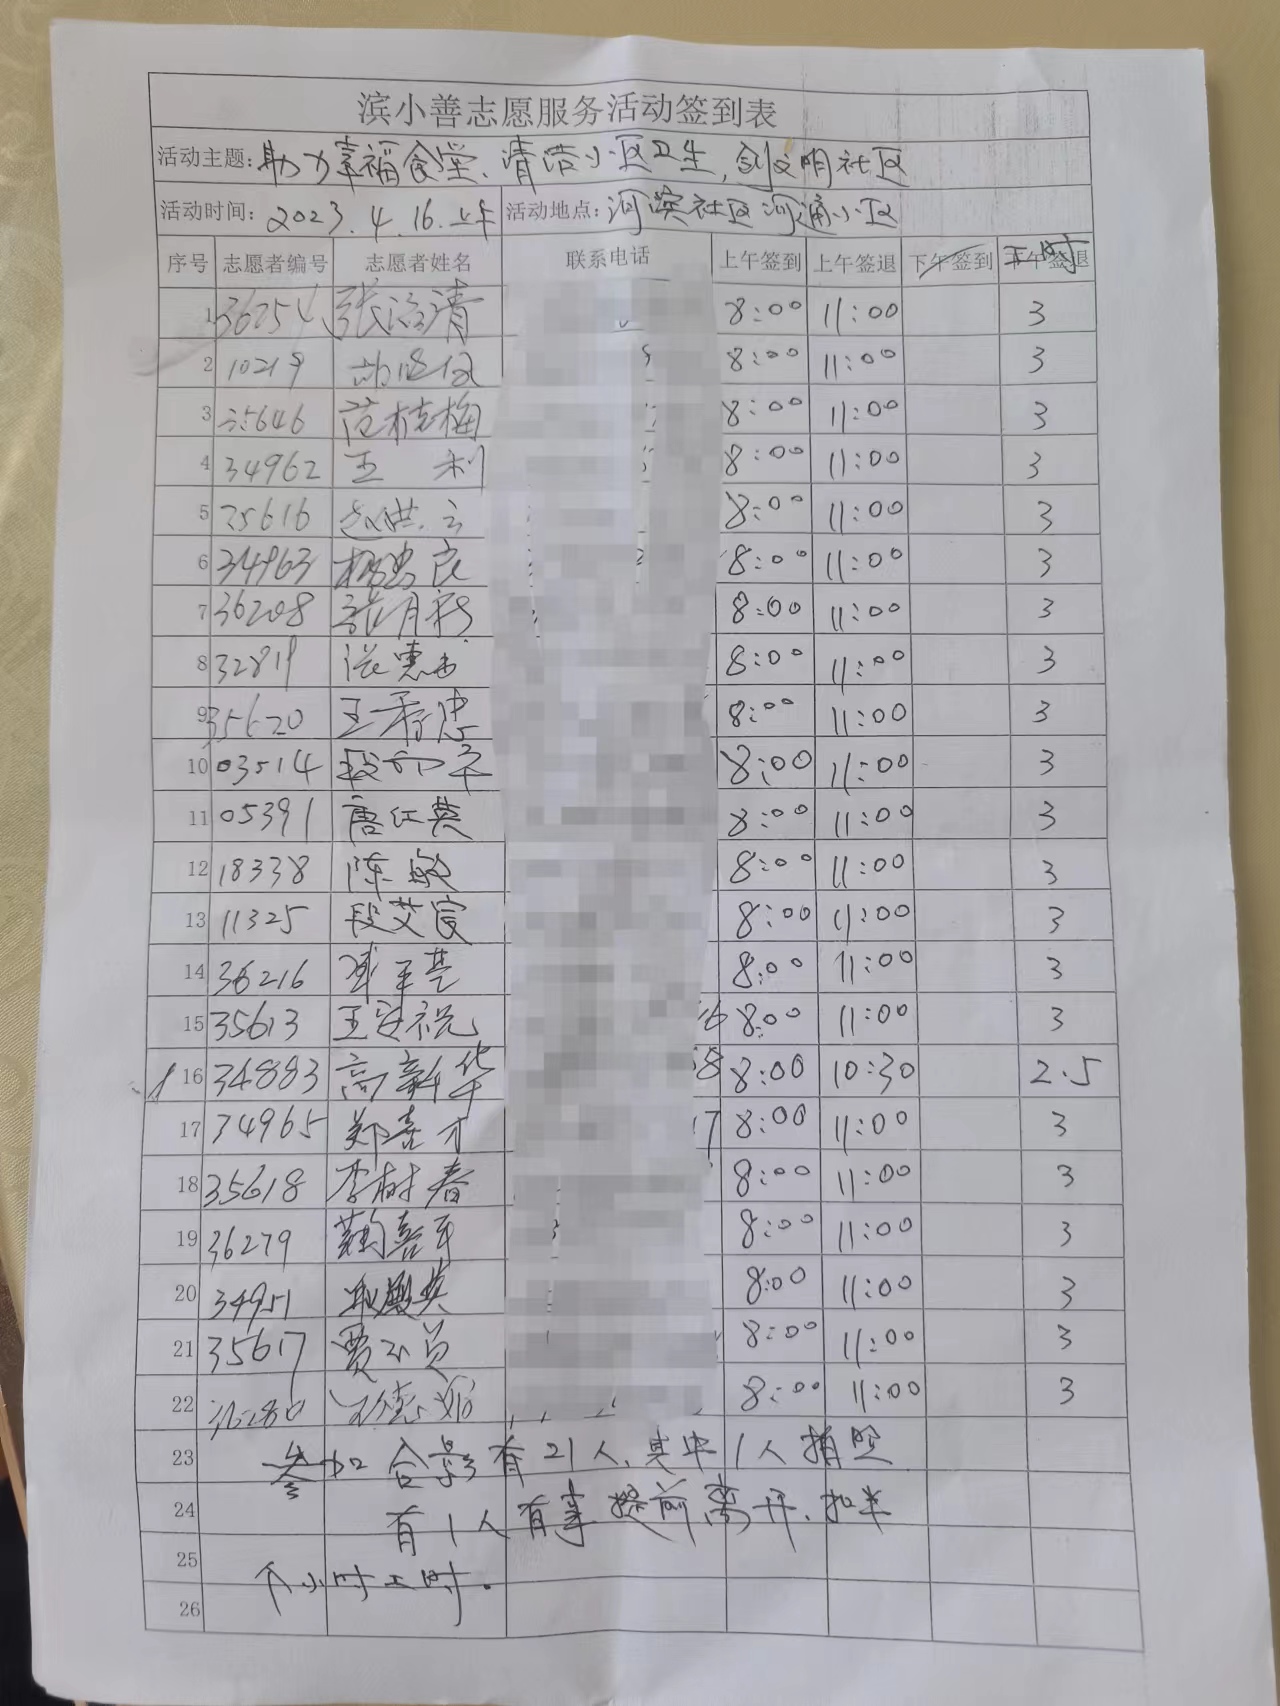 滨小善志愿服务活动签到表
活动主题: 助力幸福食堂、清洁小区卫生,创文明社区
活动时间: 2023.4.16.上午 活动地点: 河滨社区河涌小区
序号 志愿者编号 志愿者姓名 联系电话 上午签到 上午签退 下午签到 下午签退 工时
1 36254 张洛清 8:00 11:00 3
2 10219 8:00 11:00 3
3 35646 范桂梅 8:00 11:00 3
4 34962 王利 8:00 11:00 3
5 25616 赵洪云 8:00 11:00 3
6 34963 杨忠良 8:00 11:00 3
7 36208 张月新 8:00 11:00 3
8 32819 8:00 11:00 3
9 35620 王希忠 8:00 11:00 3
10 03514 8:00 11:00 3
11 05391 唐红英 8:00 11:00 3
12 18338 陈敏 8:00 11:00 3
13 11325 段艾宸 8:00 11:00 3
14 36216 8:00 11:00 3
15 35613 王安祝 8:00 11:00 3
16 34883 高新华 8:00 10:30 2.5
17 34965 郑喜才 8:00 11:00 3
18 35618 李树春 8:00 11:00 3
19 36279 8:00 11:00 3
20 34951 8:00 11:00 3
21 35617 贾 8:00 11:00 3
22 36280 8:00 11:00 3
23 参加合影有21人,其中1人拍照
24 有1人有事提前离开,扣半
25 个小时工时。
26